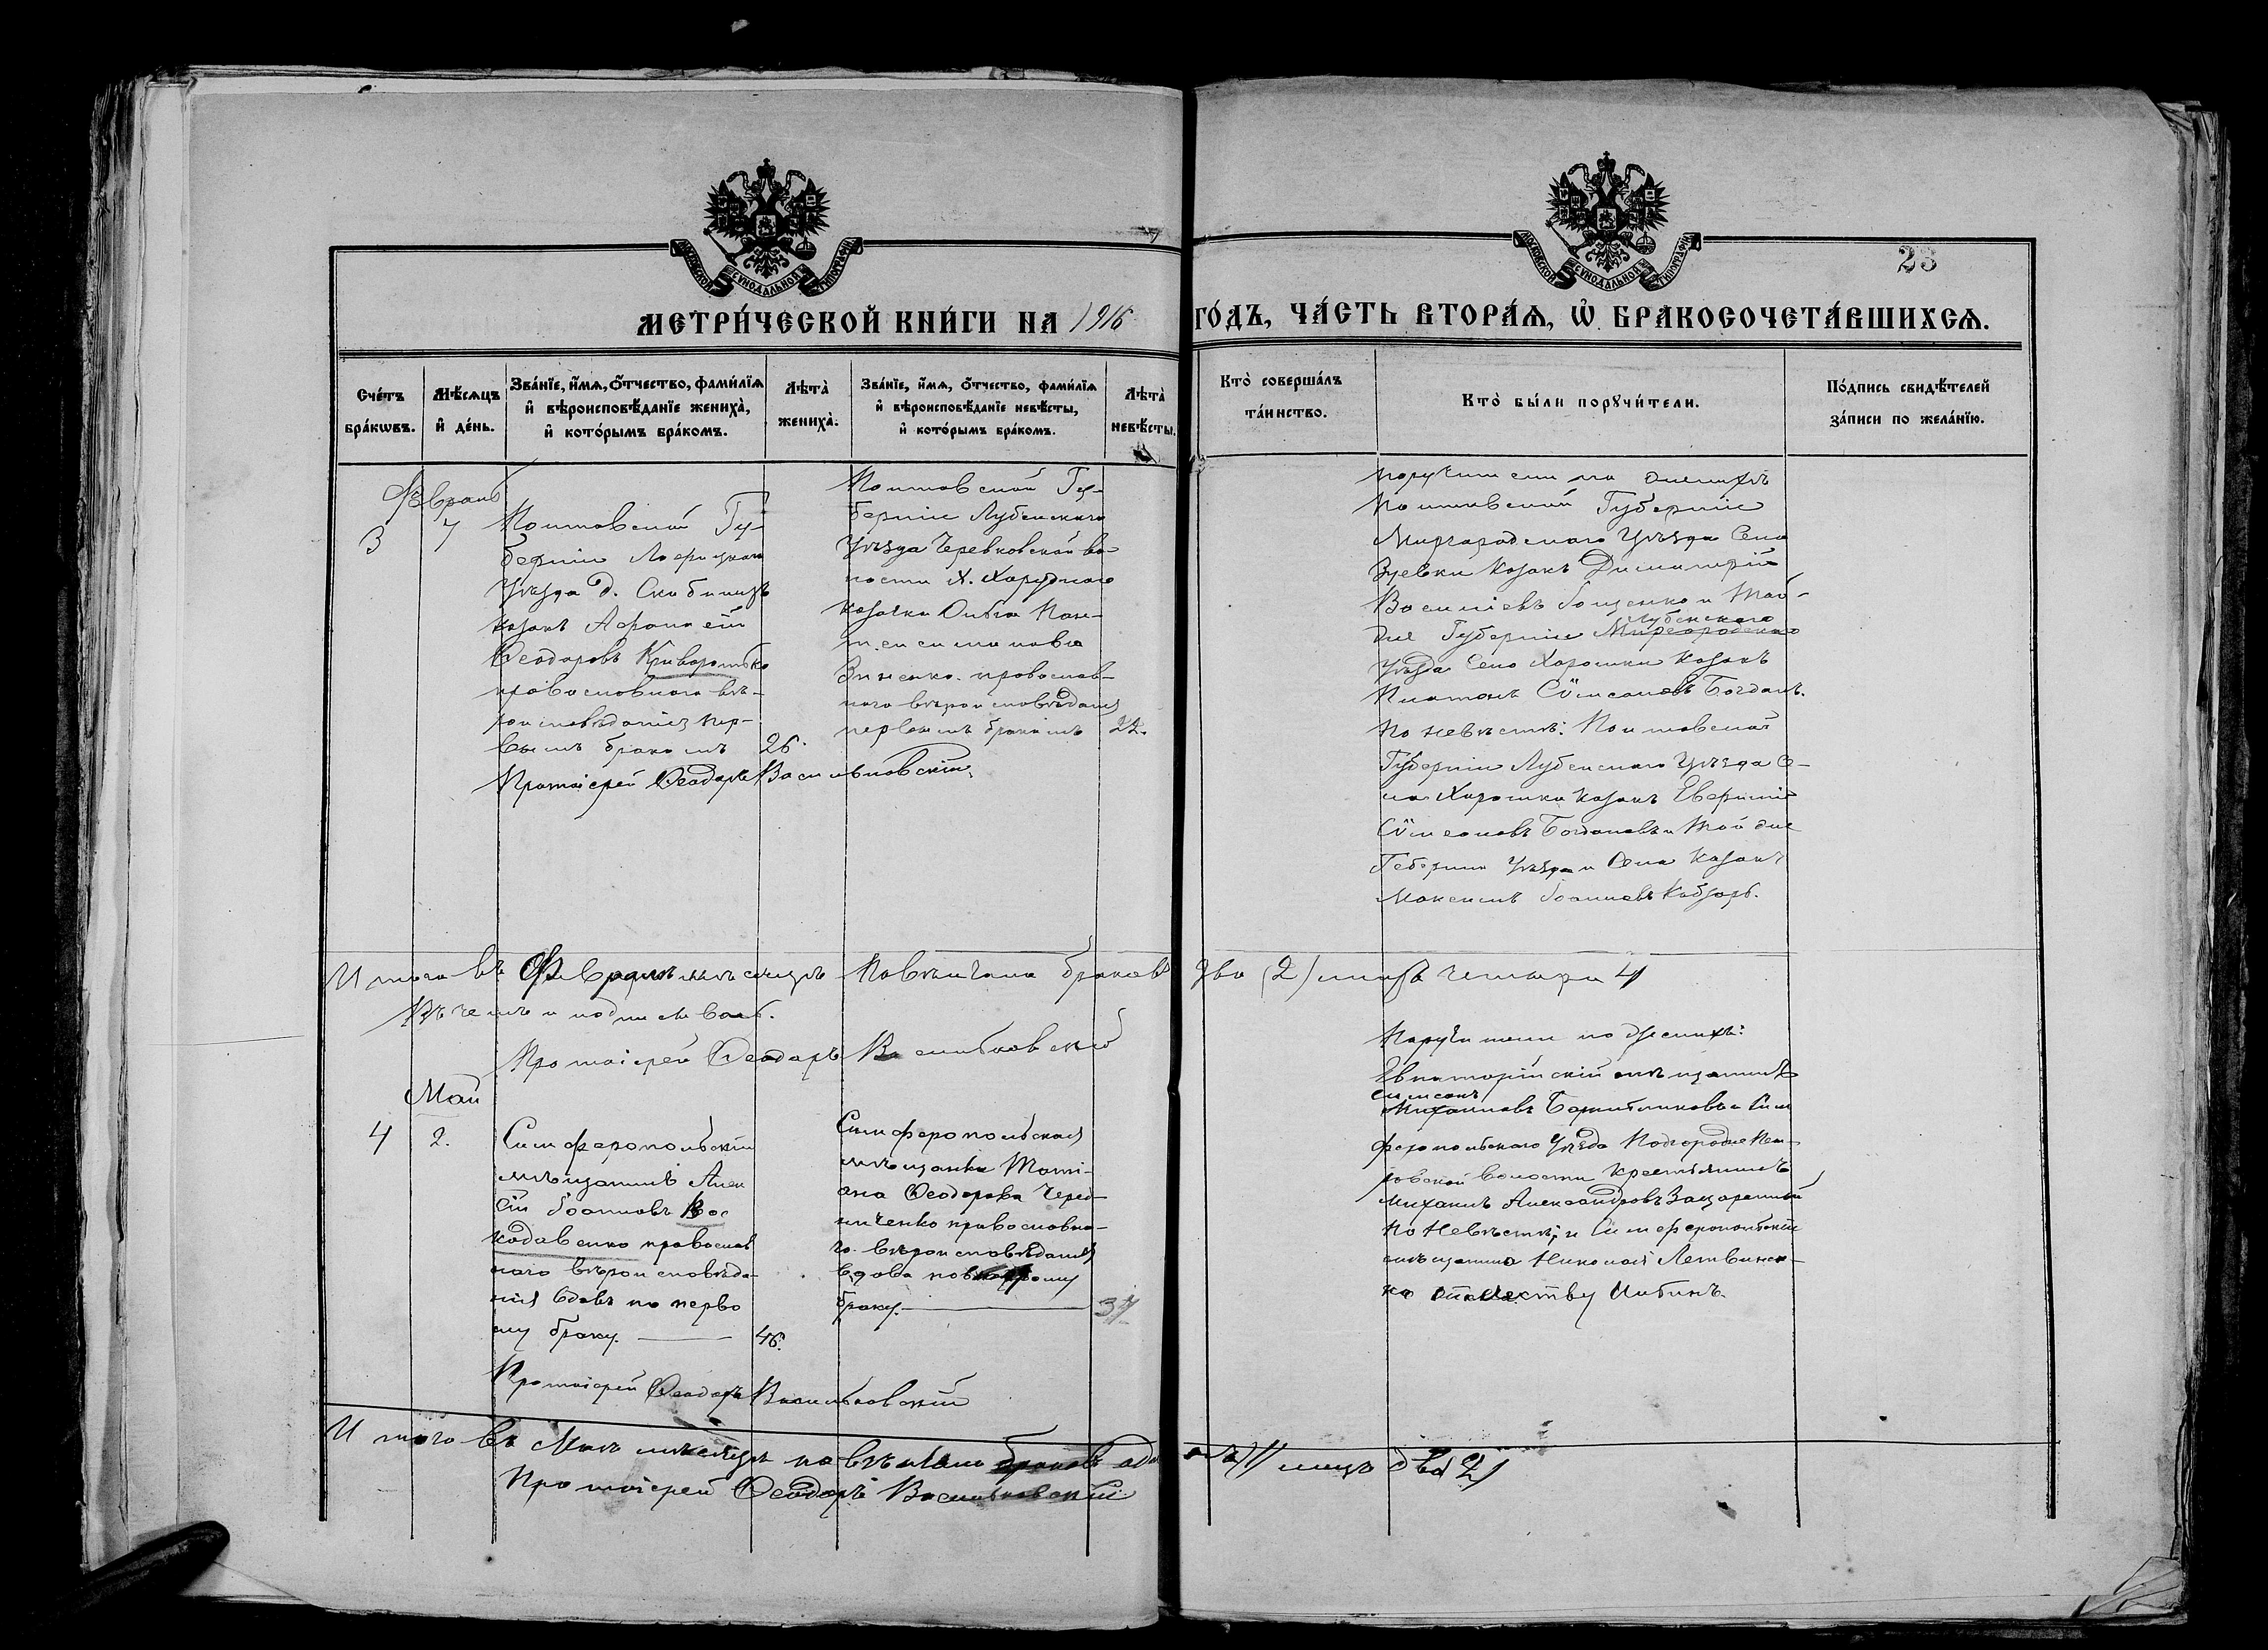 МОСКОВСКОЙ СѴНОДАЛЬНОЙ ТИПОГРАФІИ
МОСКОВСКОЙ СѴНОДАЛЬНОЙ ТИПОГРАФІИ
23
МЕТРИ́ЧЕСКОЙ КНИ́ГИ НА 1916 ГО́ДЪ, ЧА́СТЬ ВТОРА́Ѧ, Ѡ҆ БРАКОСОЧЕТА́ВШИХСѦ.
Сче́тъ бра́кѡвъ.
Мѣ́сѧцъ и҆ де́нь.
Зва́нїе, и҆́мѧ, ѻ҆́тчество, фами́лїѧ и҆ вѣроисповѣ́данїе жениха̀, и҆ кото́рымъ бра́комъ.
Лѣта̀ жениха̀.
Зва́нїе, и҆́мѧ, ѻ҆́тчество, фами́лїѧ и҆ вѣроисповѣ́данїе невѣ́сты, и҆ кото́рымъ бра́комъ.
Лѣта̀ невѣ́сты.
Кто̀ соверша́лъ та́инство.
Кто̀ бы́ли порꙋчи́тели.
По́дпись свидѣ́телей за́писи по жела́нїю.
Февраль
3
7
Полтавской Гу-
берніи Лохвицкаго
Уѣзда д.
козакъ Афанасій
Ѳеодоровъ Криворотько
православнаго вѣ-
роисповѣданія, пер-
вымъ бракомъ
26.
Полтавской Гу-
берніи Лубенскаго
Уѣзда Черевковской во-
лости х.
козачка Ольга Пан-
телеимонова
Зиненко православ-
наго вѣроисповѣданія
первымъ бракомъ
22.
Протоіерей Ѳеодоръ Васильковскій.
поручители по женихѣ
Полтавской Губерніи
Миргородскаго Уѣзда Села
Зуевки Козакъ Димитрій
Василіевъ и той-
же Губерніи Миргородскаго Лубенскаго
Уѣзда Села Хорошки Козакъ
Платонъ Сѵмеоновъ Богдан.
по невѣстѣ: Полтавской
Губерніи Лубенскаго Уѣзда Се-
ла Хорошки Козакъ
Сѵмеоновъ Богдановъ и той же
Губерніи Уѣзда и Села Козакъ
Максимъ Іоанновъ Кобзарь.
Итого въ Февралѣ мѣсяцѣ повѣнчано браковъ два (2) лицъ четыри 4
Въ чемъ и подписываюсь.
Протоіерей Ѳеодоръ Васильковскій
Май
4
2.
Симферопольскій
мѣщанинъ Алек
сій Іоанновъ Вос
кодавенко православ
наго вѣроисповѣда-
нія вдовъ по перво
му браку.
46.
Симферопольская
мѣщанка Тати-
ана Ѳеодорова Черед-
ниченко православна-
го вѣроисповѣданія
вдова по
браку.
37
Поручители по женихѣ:
Евпаторійскій мѣщанинъ
Симеонъ
Михаиловъ и Сим
феропольскаго Уѣзда Подгородне Пет-
ровской волости Крестьянинъ
Михаилъ Александровъ
по Невѣстѣ; и Симферопольскіе
мѣщанинъ Николай
по отечеству
Протоіерей Ѳеодоръ Васильковскій
Итого въ Маѣ мѣсяцѣ повѣнчано браковъ одинъ 1/ лицъ два 2/
Протоіерей Ѳеодоръ Васильковскій